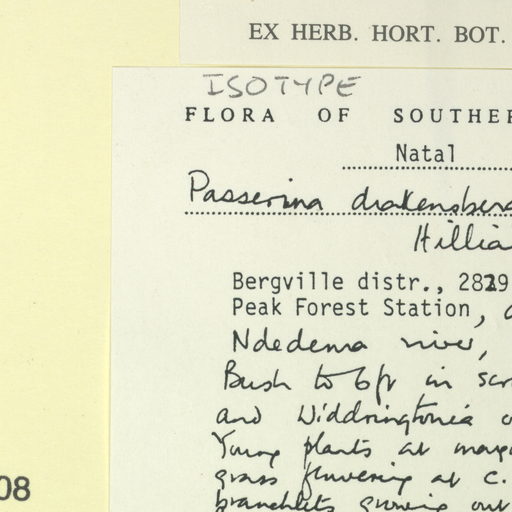 EX HERB. HORT. BOT.
ISOTYPE
FLORA OF SOUTHER
Natal
Passerina drakensberg
Hillia
Bergville distr., 2829
Peak Forest Station,
Ndedema river,
Bush to 6ft in scr
and Widdringtonia
Young plants at marg
grass flowering at c.
branchlets growing out
08